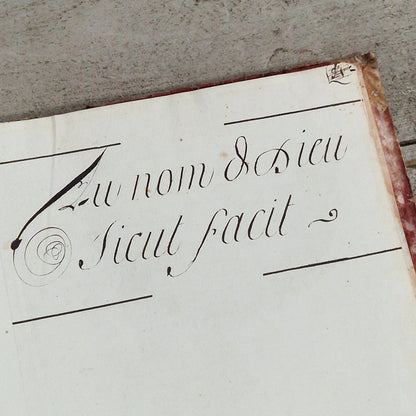 Au nom de Dieu
Sicut facit